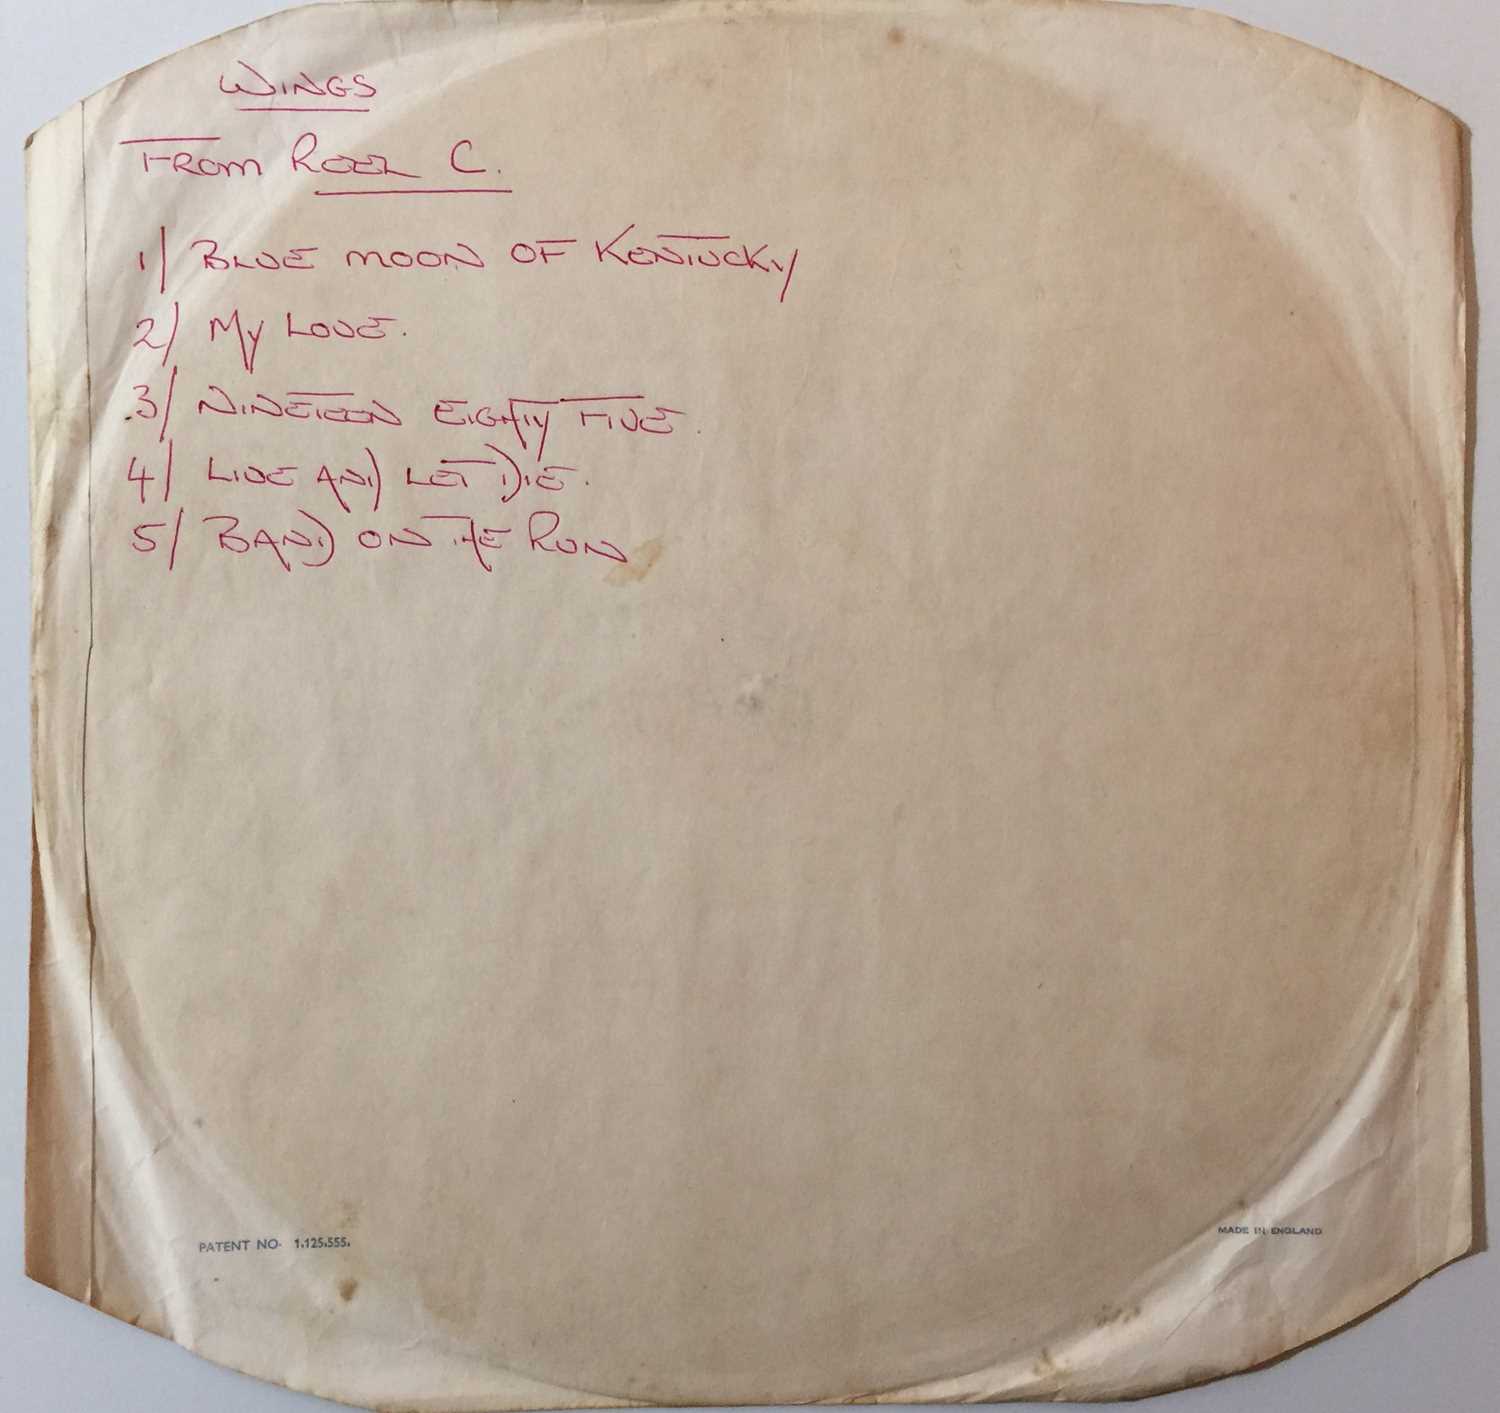 WINGS
FROM REEL C.
1/ BLUE MOON OF KENTUCKY
2/ MY LOVE.
3/ NINETEEN EIGHTY FIVE.
4/ LIVE AND LET DIE.
5/ BAND ON THE RUN
PATENT NO. 1,125,555.
MADE IN ENGLAND